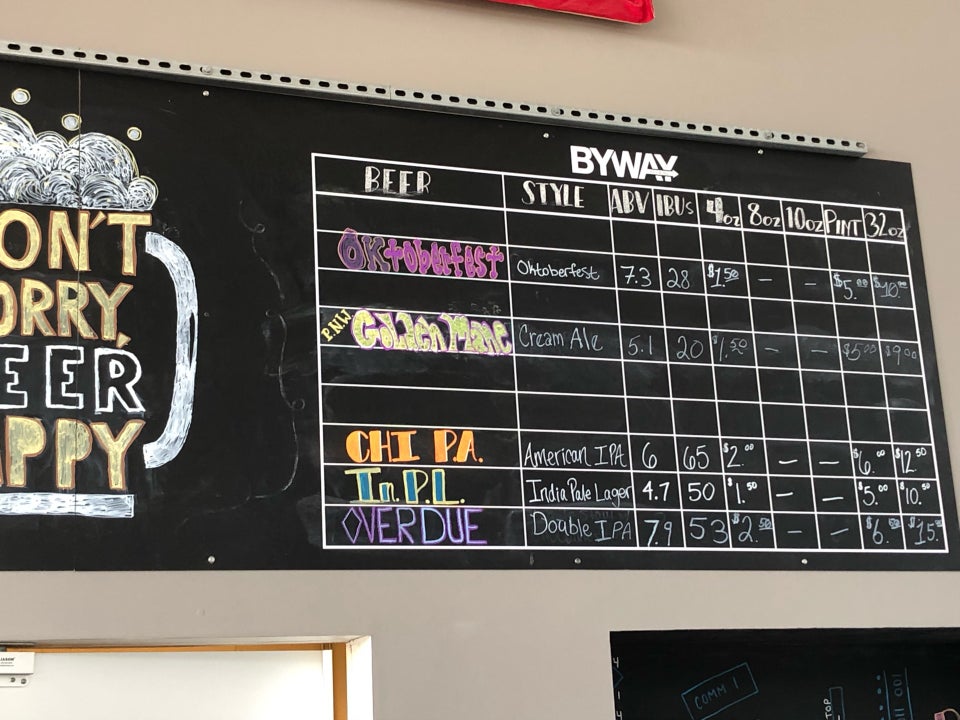 ON'T
ORRY,
EER
APPY
BYWAY
BEER STYLE ABV IBUs 4oz 8oz 10oz PINT 32oz
OKtoberfest Oktoberfest 7.3 28 $1.50 — — $5.00 $10.
P.N.W. Golden Mane Cream Ale 5.1 20 $1.50 — — $5.00 $9.00
CHI P.A. American IPA 6 65 $2.00 — — $6.00 $12.50
In. P.L. India Pale Lager 4.7 50 $1.50 — — $5.00 $10.50
OVERDUE Double IPA 7.9 53 $2.50 — — $6. $15.
COMM 1